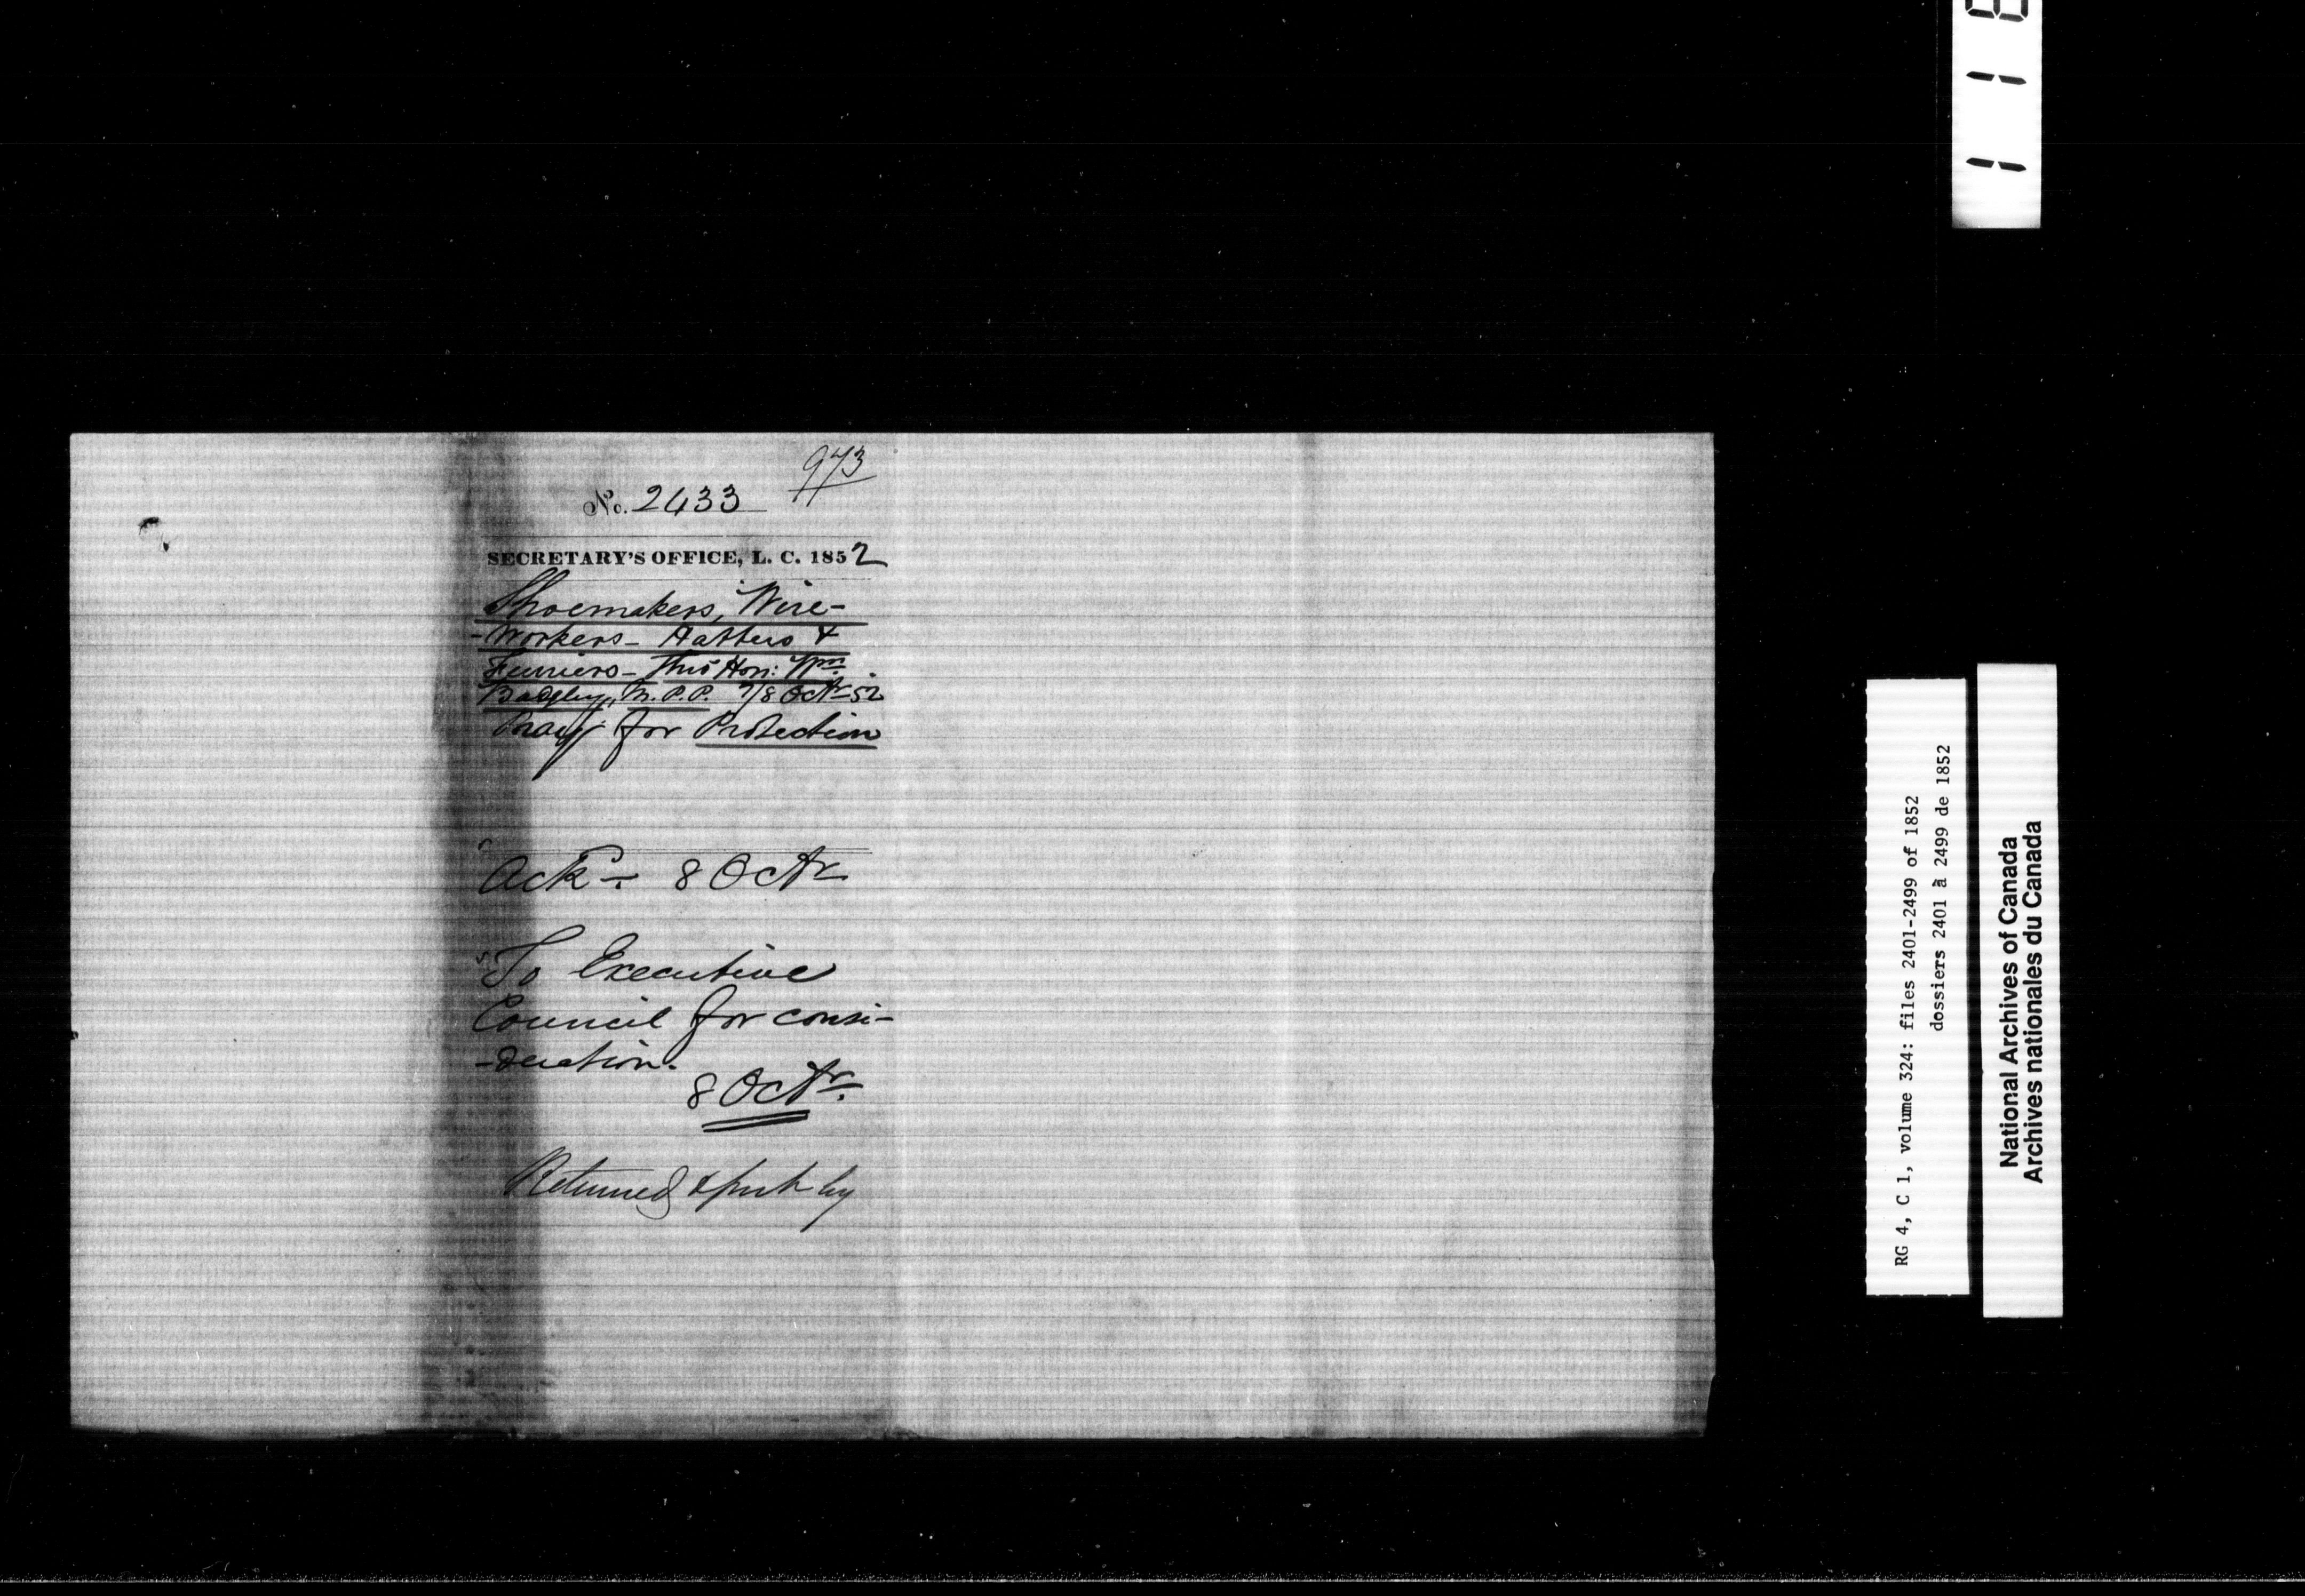 973
No. 2433
SECRETARY'S OFFICE, L. C. 1852
Shoemakers, Wire-
-Workers - Hatters &
Furriers - Thro Hon: Wm.
Badgley, M.P.P. 7/8 Octr 52
Pray for Protection
Ackd. 8 Octr
To Executive
Council for consi-
-deration.
8 Octr.
Returned & put by
RG 4, C 1, volume 324: files 2401-2499 of 1852
dossiers 2401 à 2499 de 1852
National Archives of Canada
Archives nationales du Canada